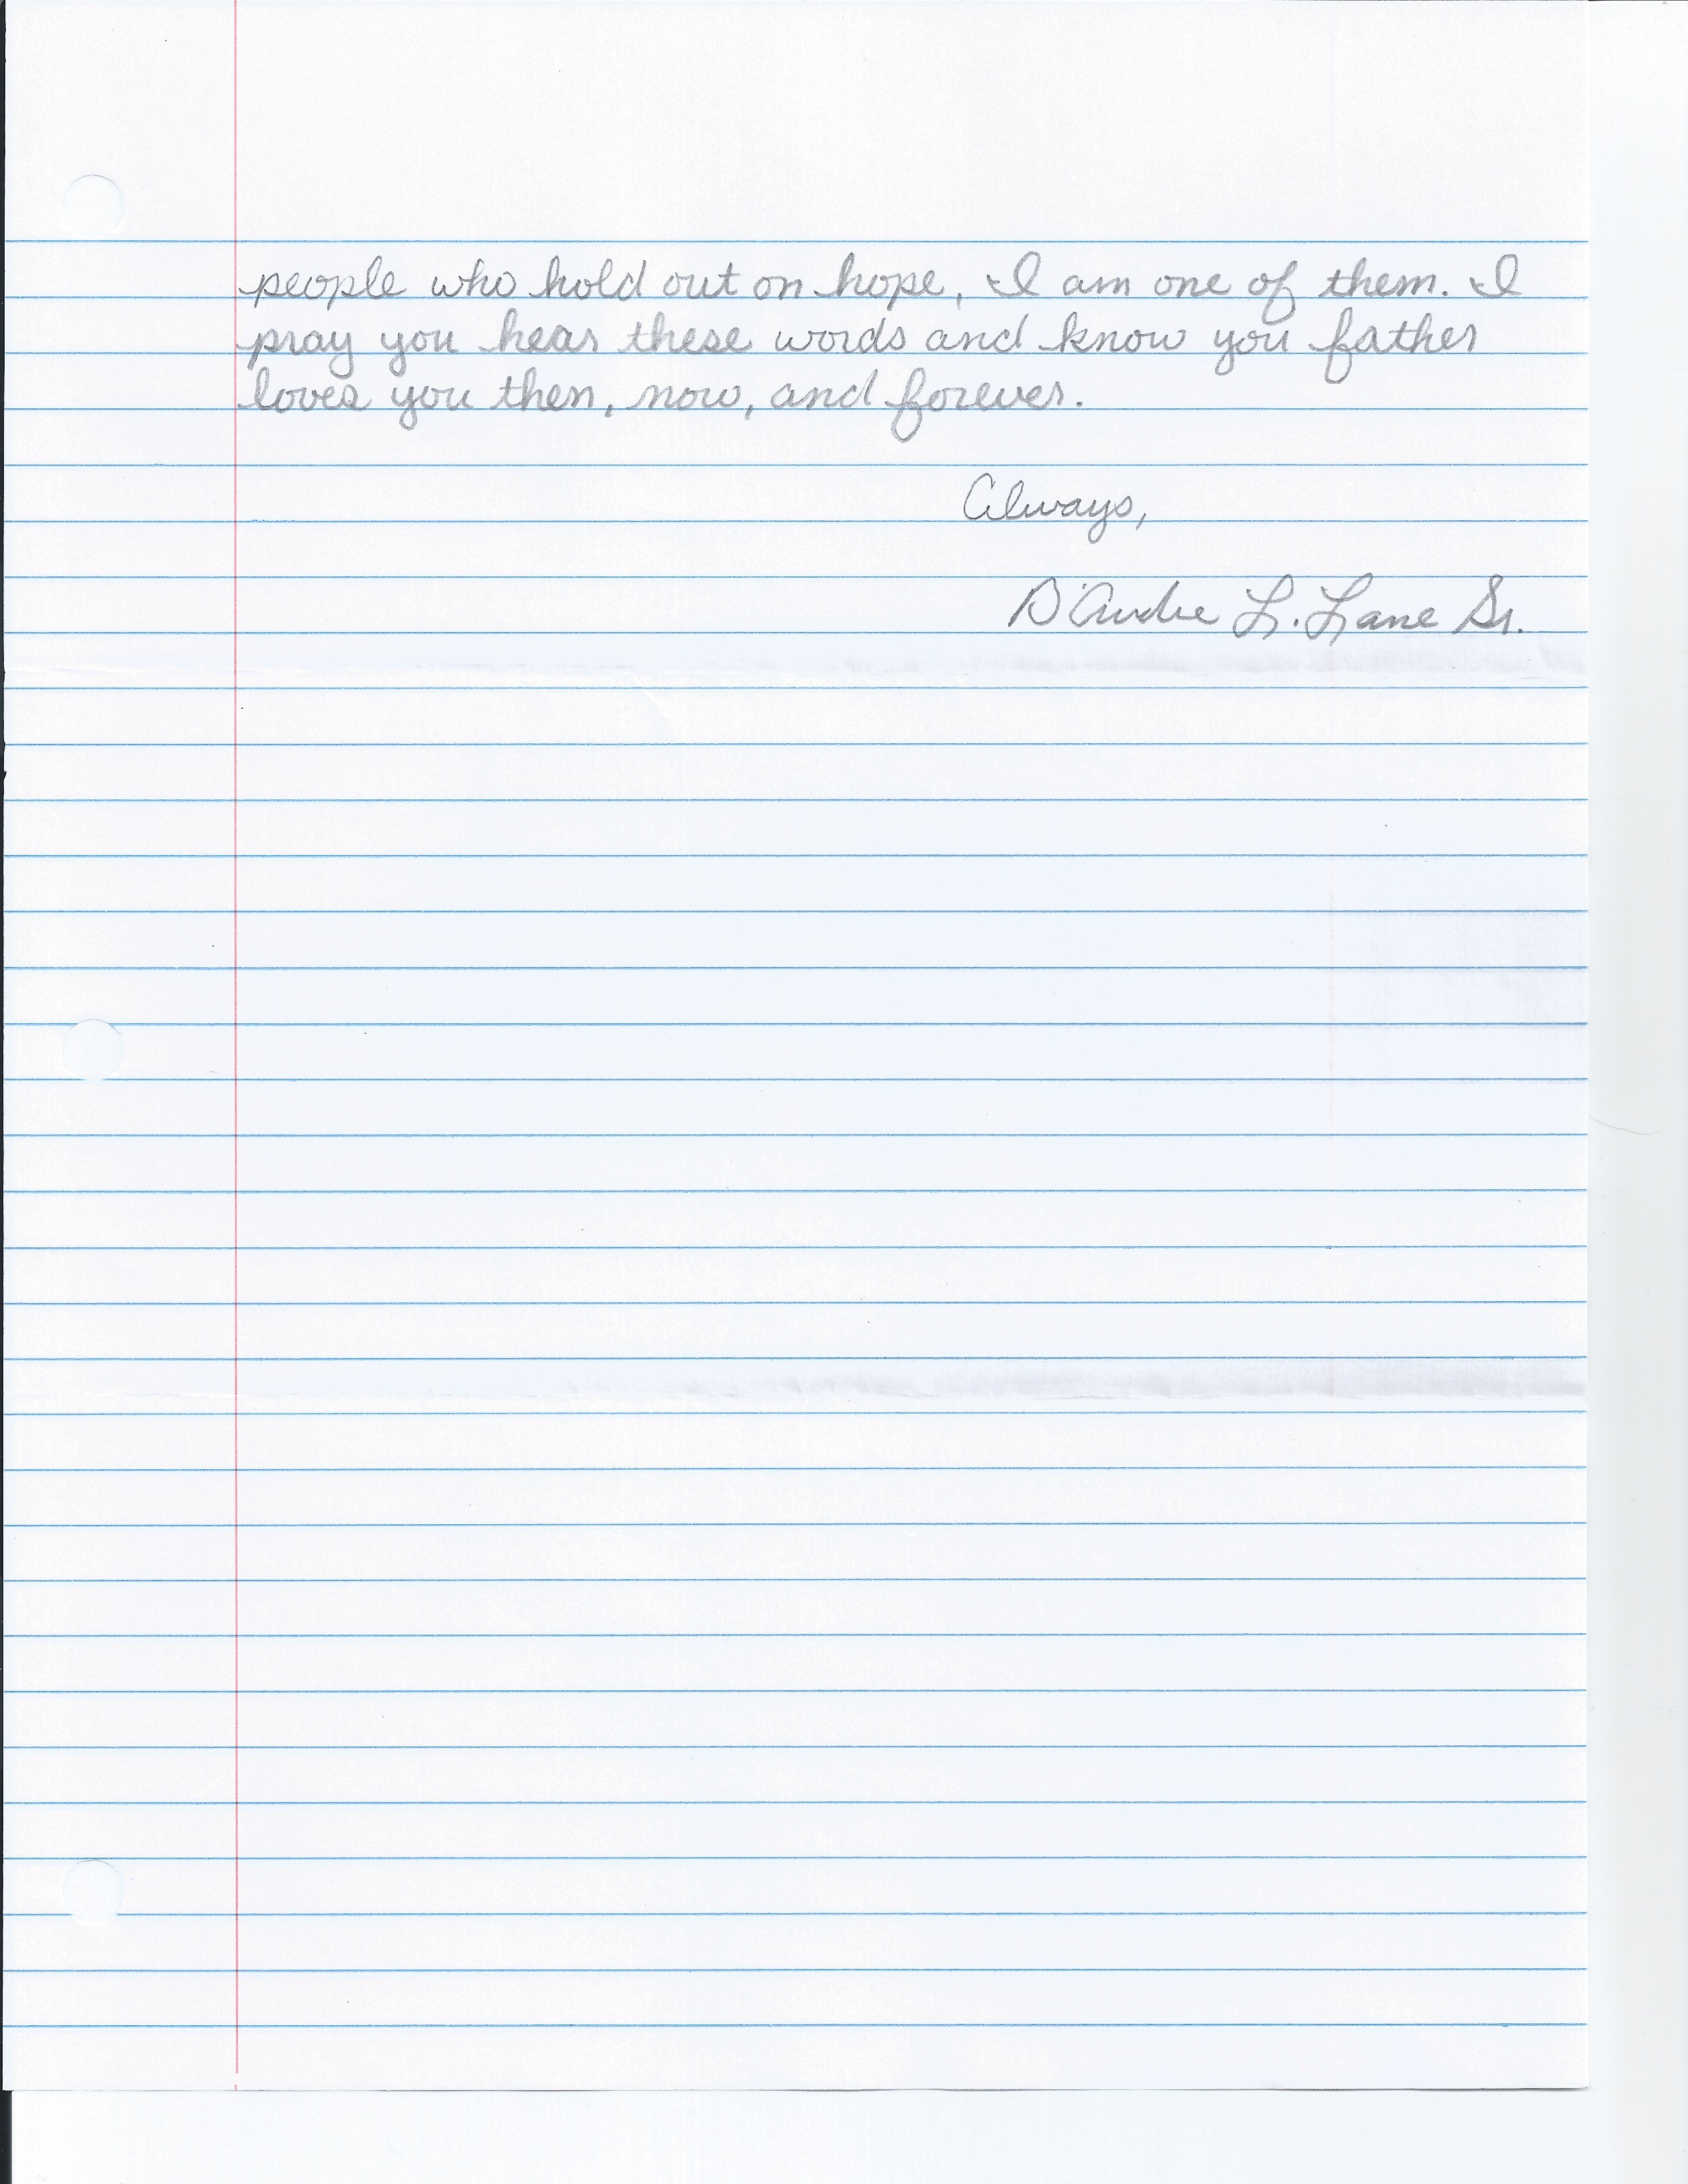 people who hold out on hope, I am one of them. I
pray you hear these words and know you father
loves you then, now, and forever.
Always,
D'Andre L. Lane Sr.